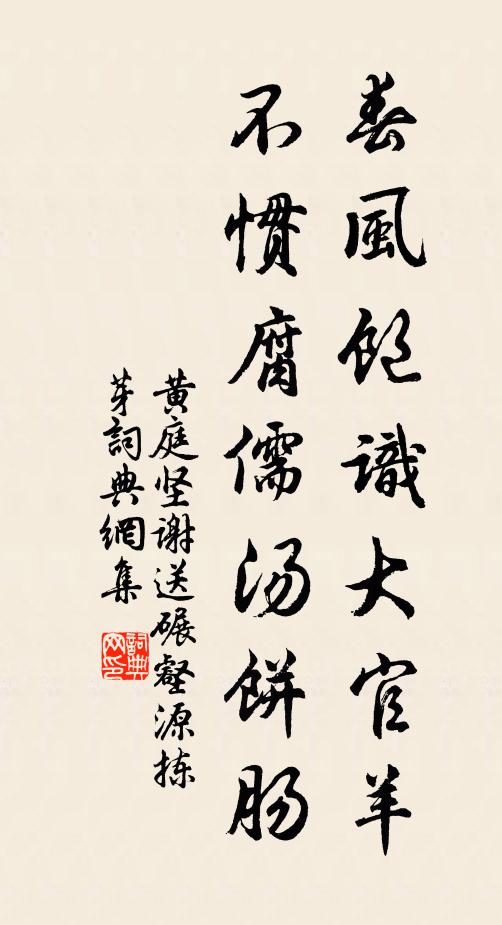 春風飽識大官羊
不慣腐儒汤餅肠
黄庭坚謝送碾壑源拣
芽詞典網集
詞典网印